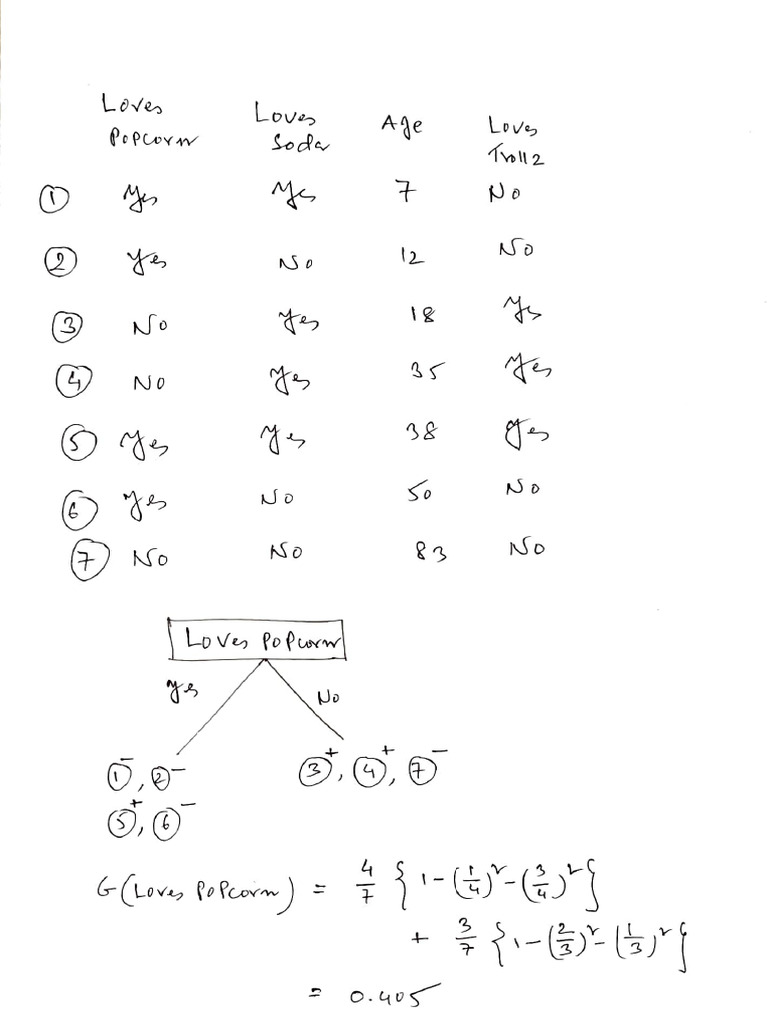 Loves Popcorn Loves Soda Age Loves Troll 2
① Yes Yes 7 No
② Yes No 12 No
③ No Yes 18 Yes
④ No Yes 35 Yes
⑤ Yes Yes 38 Yes
⑥ Yes No 50 No
⑦ No No 83 No
Loves Popcorn
Yes No
①⁻, ②⁻ ③⁺, ④⁺, ⑦⁻
⑤⁺, ⑥⁻
G(Loves Popcorn) = 4/7 {1-(1/4)²-(3/4)²}
+ 3/7 {1-(2/3)²-(1/3)²}
= 0.405